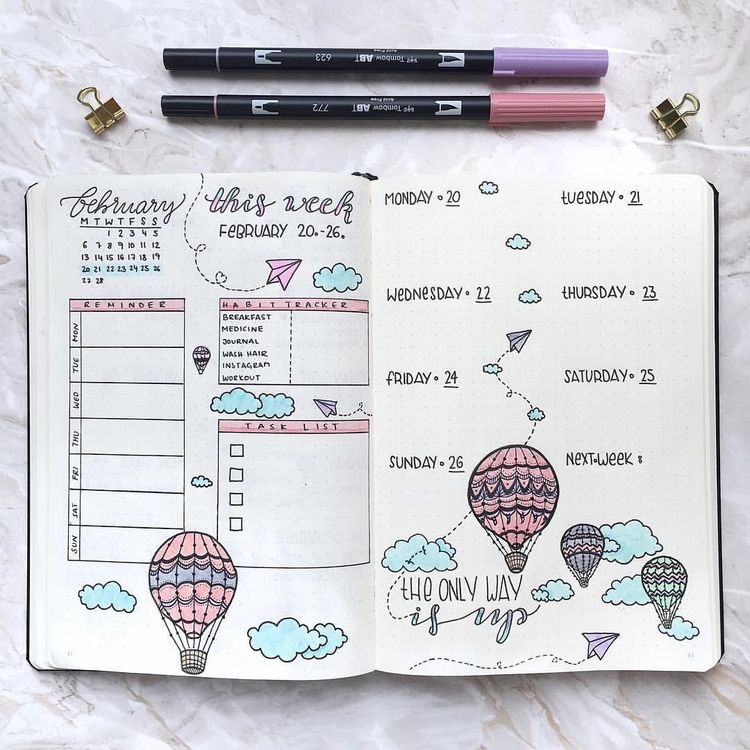 623 Tombow ABT
Acid Free
772 Tombow ABT
Acid Free
february
M T W T F S S
1 2 3 4 5
6 7 8 9 10 11 12
13 14 15 16 17 18 19
20 21 22 23 24 25 26
27 28
this week
FEBRUARY 20.-26.
REMINDER
MON
TUE
WED
THU
FRI
SAT
SUN
HABIT TRACKER
BREAKFAST
MEDICINE
JOURNAL
WASH HAIR
INSTAGRAM
WORKOUT
TASK LIST
MONDAY • 20
TUESDAY • 21
WEDNESDAY • 22
THURSDAY • 23
FRIDAY • 24
SATURDAY • 25
SUNDAY • 26
NEXT•WEEK :
THE ONLY WAY
is up